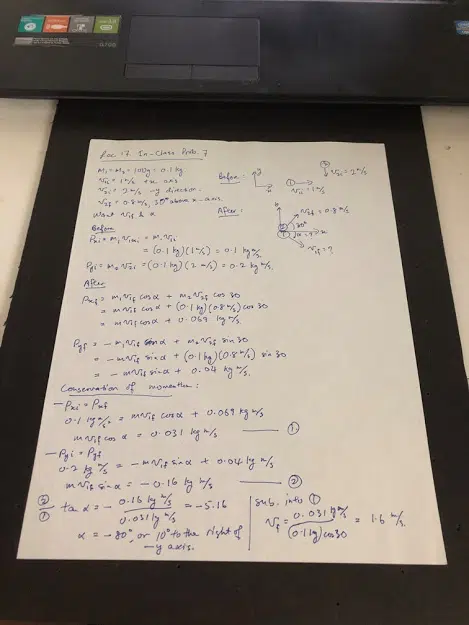 Lec 17 In-Class Prob. 7
m₁ = m₂ = 100g = 0.1 kg
v₁ᵢ = 1 m/s +x axis
v₂ᵢ = 2 m/s -y direction
v₂f = 0.8 m/s, 30° above x-axis.
Want v₁f & α
Before:
y
x
② v₂ᵢ = 2 m/s
① → v₁ᵢ = 1 m/s
After:
v₂f = 0.8 m/s
30°
α = ?
v₁f = ?
Before
Pxi = m₁v₁xi = m₁v₁i
= (0.1 kg)(1 m/s) = 0.1 kg m/s
Pyi = m₂v₂i = (0.1 kg)(2 m/s) = 0.2 kg m/s
After
Pxf = m₁v₁f cosα + m₂v₂f cos 30
= mv₁f cosα + (0.1 kg)(0.8 m/s) cos 30
= mv₁f cosα + 0.069 kg m/s.
Pyf = -m₁v₁f sinα + m₂v₂f sin 30
= -mv₁f sinα + (0.1 kg)(0.8 m/s) sin 30
= -mv₁f sinα + 0.04 kg m/s.
Conservation of momentum:
- Pxi = Pxf
0.1 kg m/s = mv₁f cosα + 0.069 kg m/s
mv₁f cosα = 0.031 kg m/s — ①
- Pyi = Pyf
0.2 kg m/s = -mv₁f sinα + 0.04 kg m/s
mv₁f sinα = -0.16 kg m/s — ②
②/① tanα = - 0.16 kg m/s / 0.031 kg m/s = -5.16
α = -80°, or 10° to the right of
-y axis.
sub. into ①
vf = 0.031 kg m/s / (0.1 kg) cos 30 = 1.6 m/s.